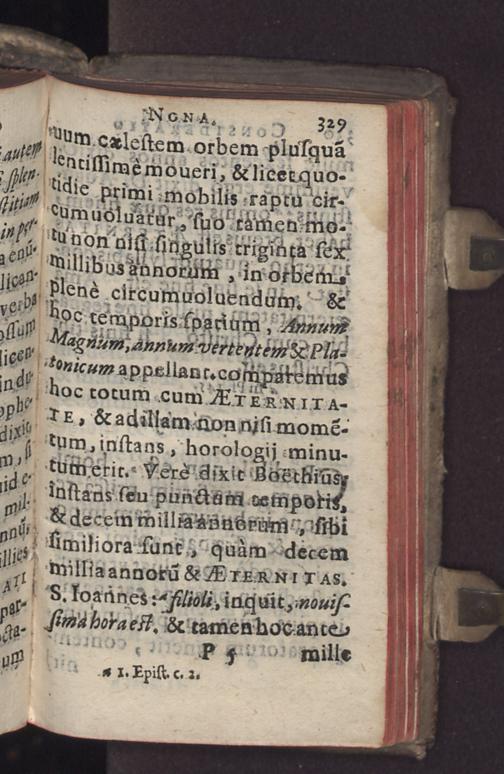 NONA. 329
uum cælestem orbem plusquā
lentissimè moueri, & licet quo-
tidie primi mobilis raptu cir-
cumuoluatur, suo tamen mo-
tu non nisi singulis triginta sex
millibus annorum, in orbem
plenè circumuoluendum. &
hoc temporis spatium, Annum
Magnum, annum vertentem & Pla-
tonicum appellant. comparemus
hoc totum cum ÆTERNITA-
TE, & ad illam non nisi momē-
tum, instans, horologij minu-
tum erit. Verè dixit Boëthius,
instans seu punctum temporis,
& decem millia annorum, sibi
similiora sunt, quàm decem
millia annorū & ÆTERNITAS.
S. Ioannes: a filioli, inquit, nouis-
sima hora est. & tamen hoc ante
P 5 mille
a 1. Epist. c. 2.